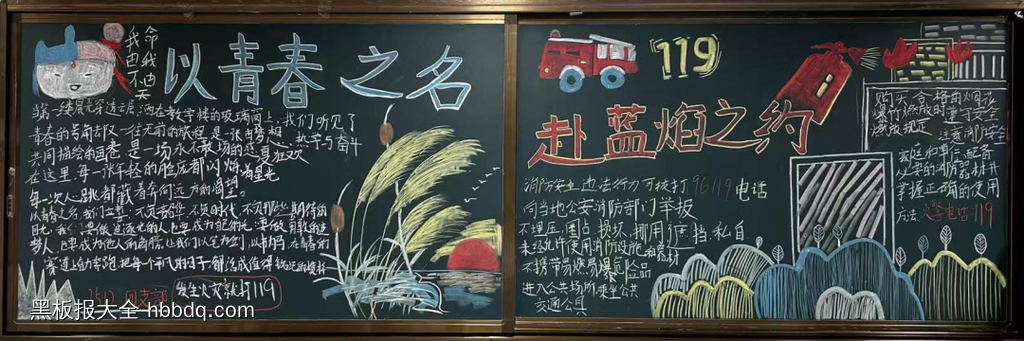 我命由我不由天
以青春之名
当第一缕晨光穿透云层,洒在教学楼的玻璃窗上,我们听见了
青春的号角
共同描绘的画卷是一场永不散场的盛夏狂欢
在这里每一张年轻的脸庞都闪烁着星光
每一次心跳都
以青春之名,我们立誓:不负韶华,不负时代,不负那些期待的
赛道上奋力奔跑,把每个平凡的日子都
发生火灾就打119
黑板报大全 hbbdq.com
119
赴蓝焰之约
消防安全违法行为可拨打96119电话
向当地公安消防部门举报
不埋压、圈占、损坏、挪用、遮挡、私自
未经允许使用消防设施和器材
不携带易燃易爆危险品
进入公共场所乘坐公共
交通公具
购买合格的烟花
爆竹燃放时要遵守安全
燃放规定,注意消防安全
家庭和单位配备
必要的消防器材并
掌握正确的使用
方法 火警电话119